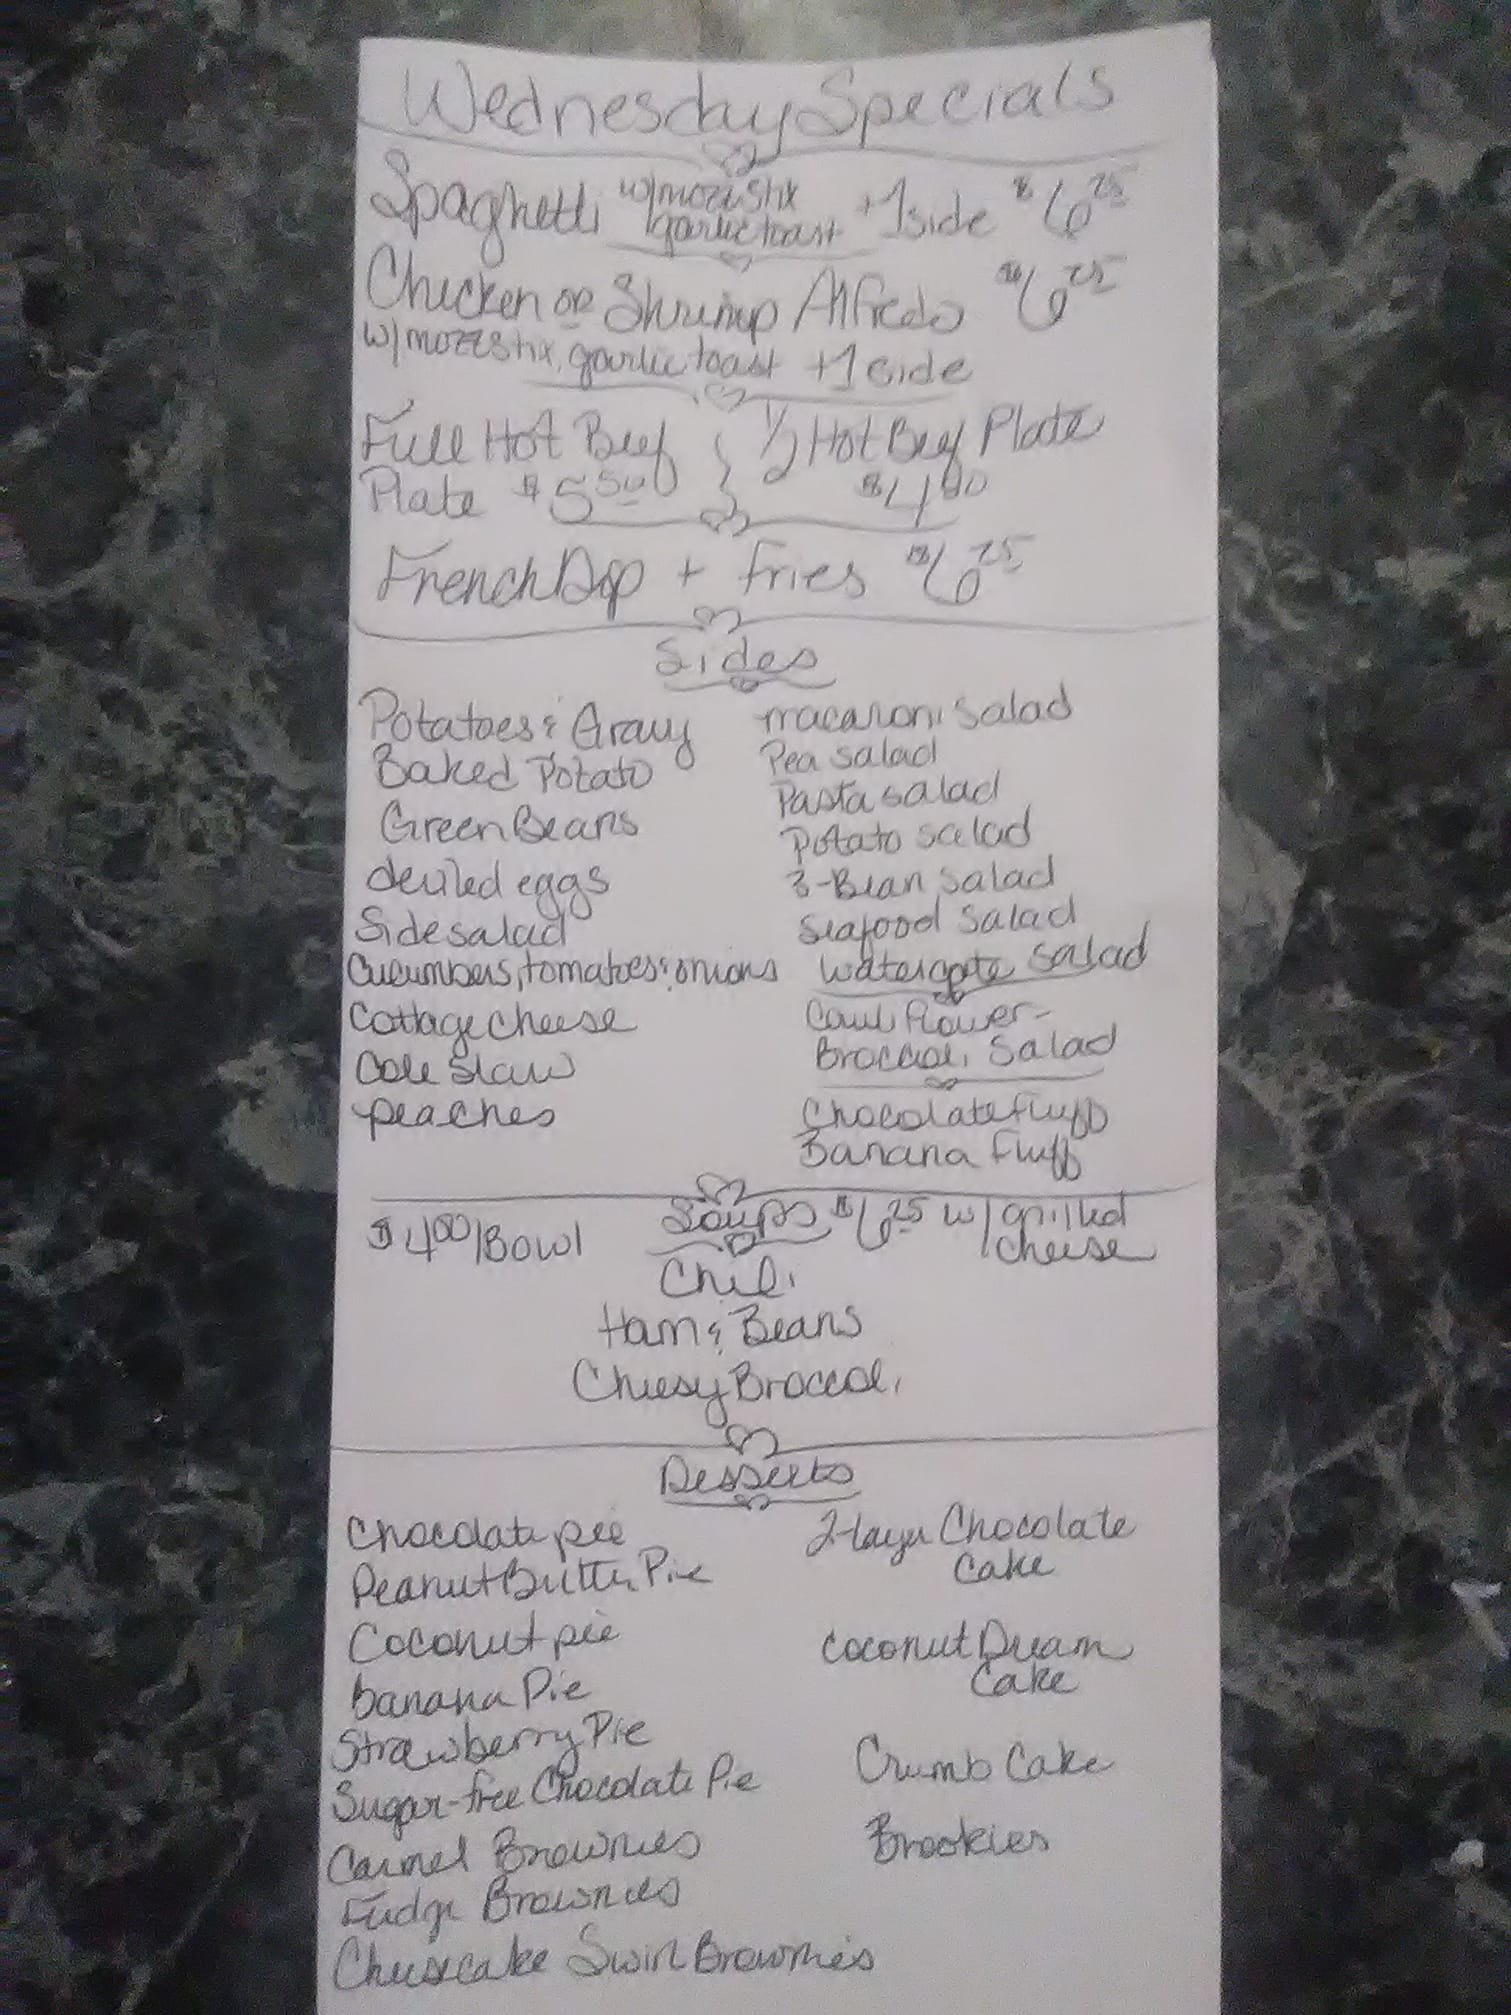 Wednesday Specials
Spaghetti w/mozz stix garlic toast +1 side $6.25
Chicken or Shrimp Alfredo $6.25
w/mozz stix, garlic toast +1 side
Full Hot Beef Plate $5.50
1/2 Hot Beef Plate $4.00
French Dip + Fries $6.25
Sides
Potatoes & Gravy
Baked Potato
Green Beans
deviled eggs
Side salad
Cucumbers, tomatoes & onions
Cottage cheese
Cole Slaw
peaches
macaroni salad
Pea salad
Pasta salad
Potato salad
3-Bean salad
Seafood salad
Watergate salad
Cauliflower-
Broccoli Salad
Chocolate Fluff
Banana Fluff
$4.00/Bowl Soups $6.25 w/grilled cheese
Chili
Ham & Beans
Cheesy Broccoli
Desserts
Chocolate pie
Peanut Butter Pie
Coconut pie
Banana Pie
Strawberry Pie
Sugar-free Chocolate Pie
Carmel Brownies
Fudge Brownies
Cheesecake Swirl Brownies
2-layer Chocolate
Cake
Coconut Dream
Cake
Crumb Cake
Brookies